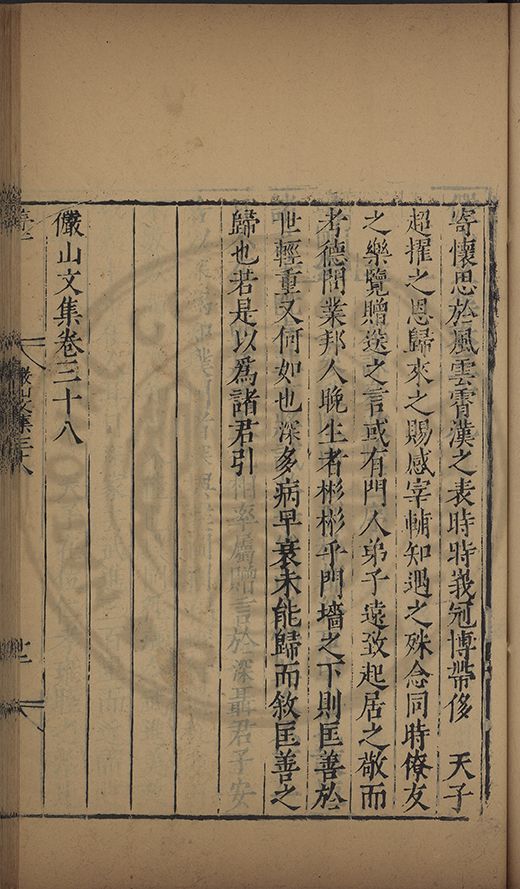 寄懷思於風雲霄漢之表時時峩冠博帶侈　天子
超擢之恩歸來之賜感宰輔知遇之殊念同時僚友
之樂覽贈送之言或有門人弟子遠致起居之敬而
考德問業邦人晚生者彬彬乎門墻之下則匡善於
世輕重又何如也深多病早衰未能歸而敘匡善之
歸也若是以爲諸君引
儼山文集卷三十八